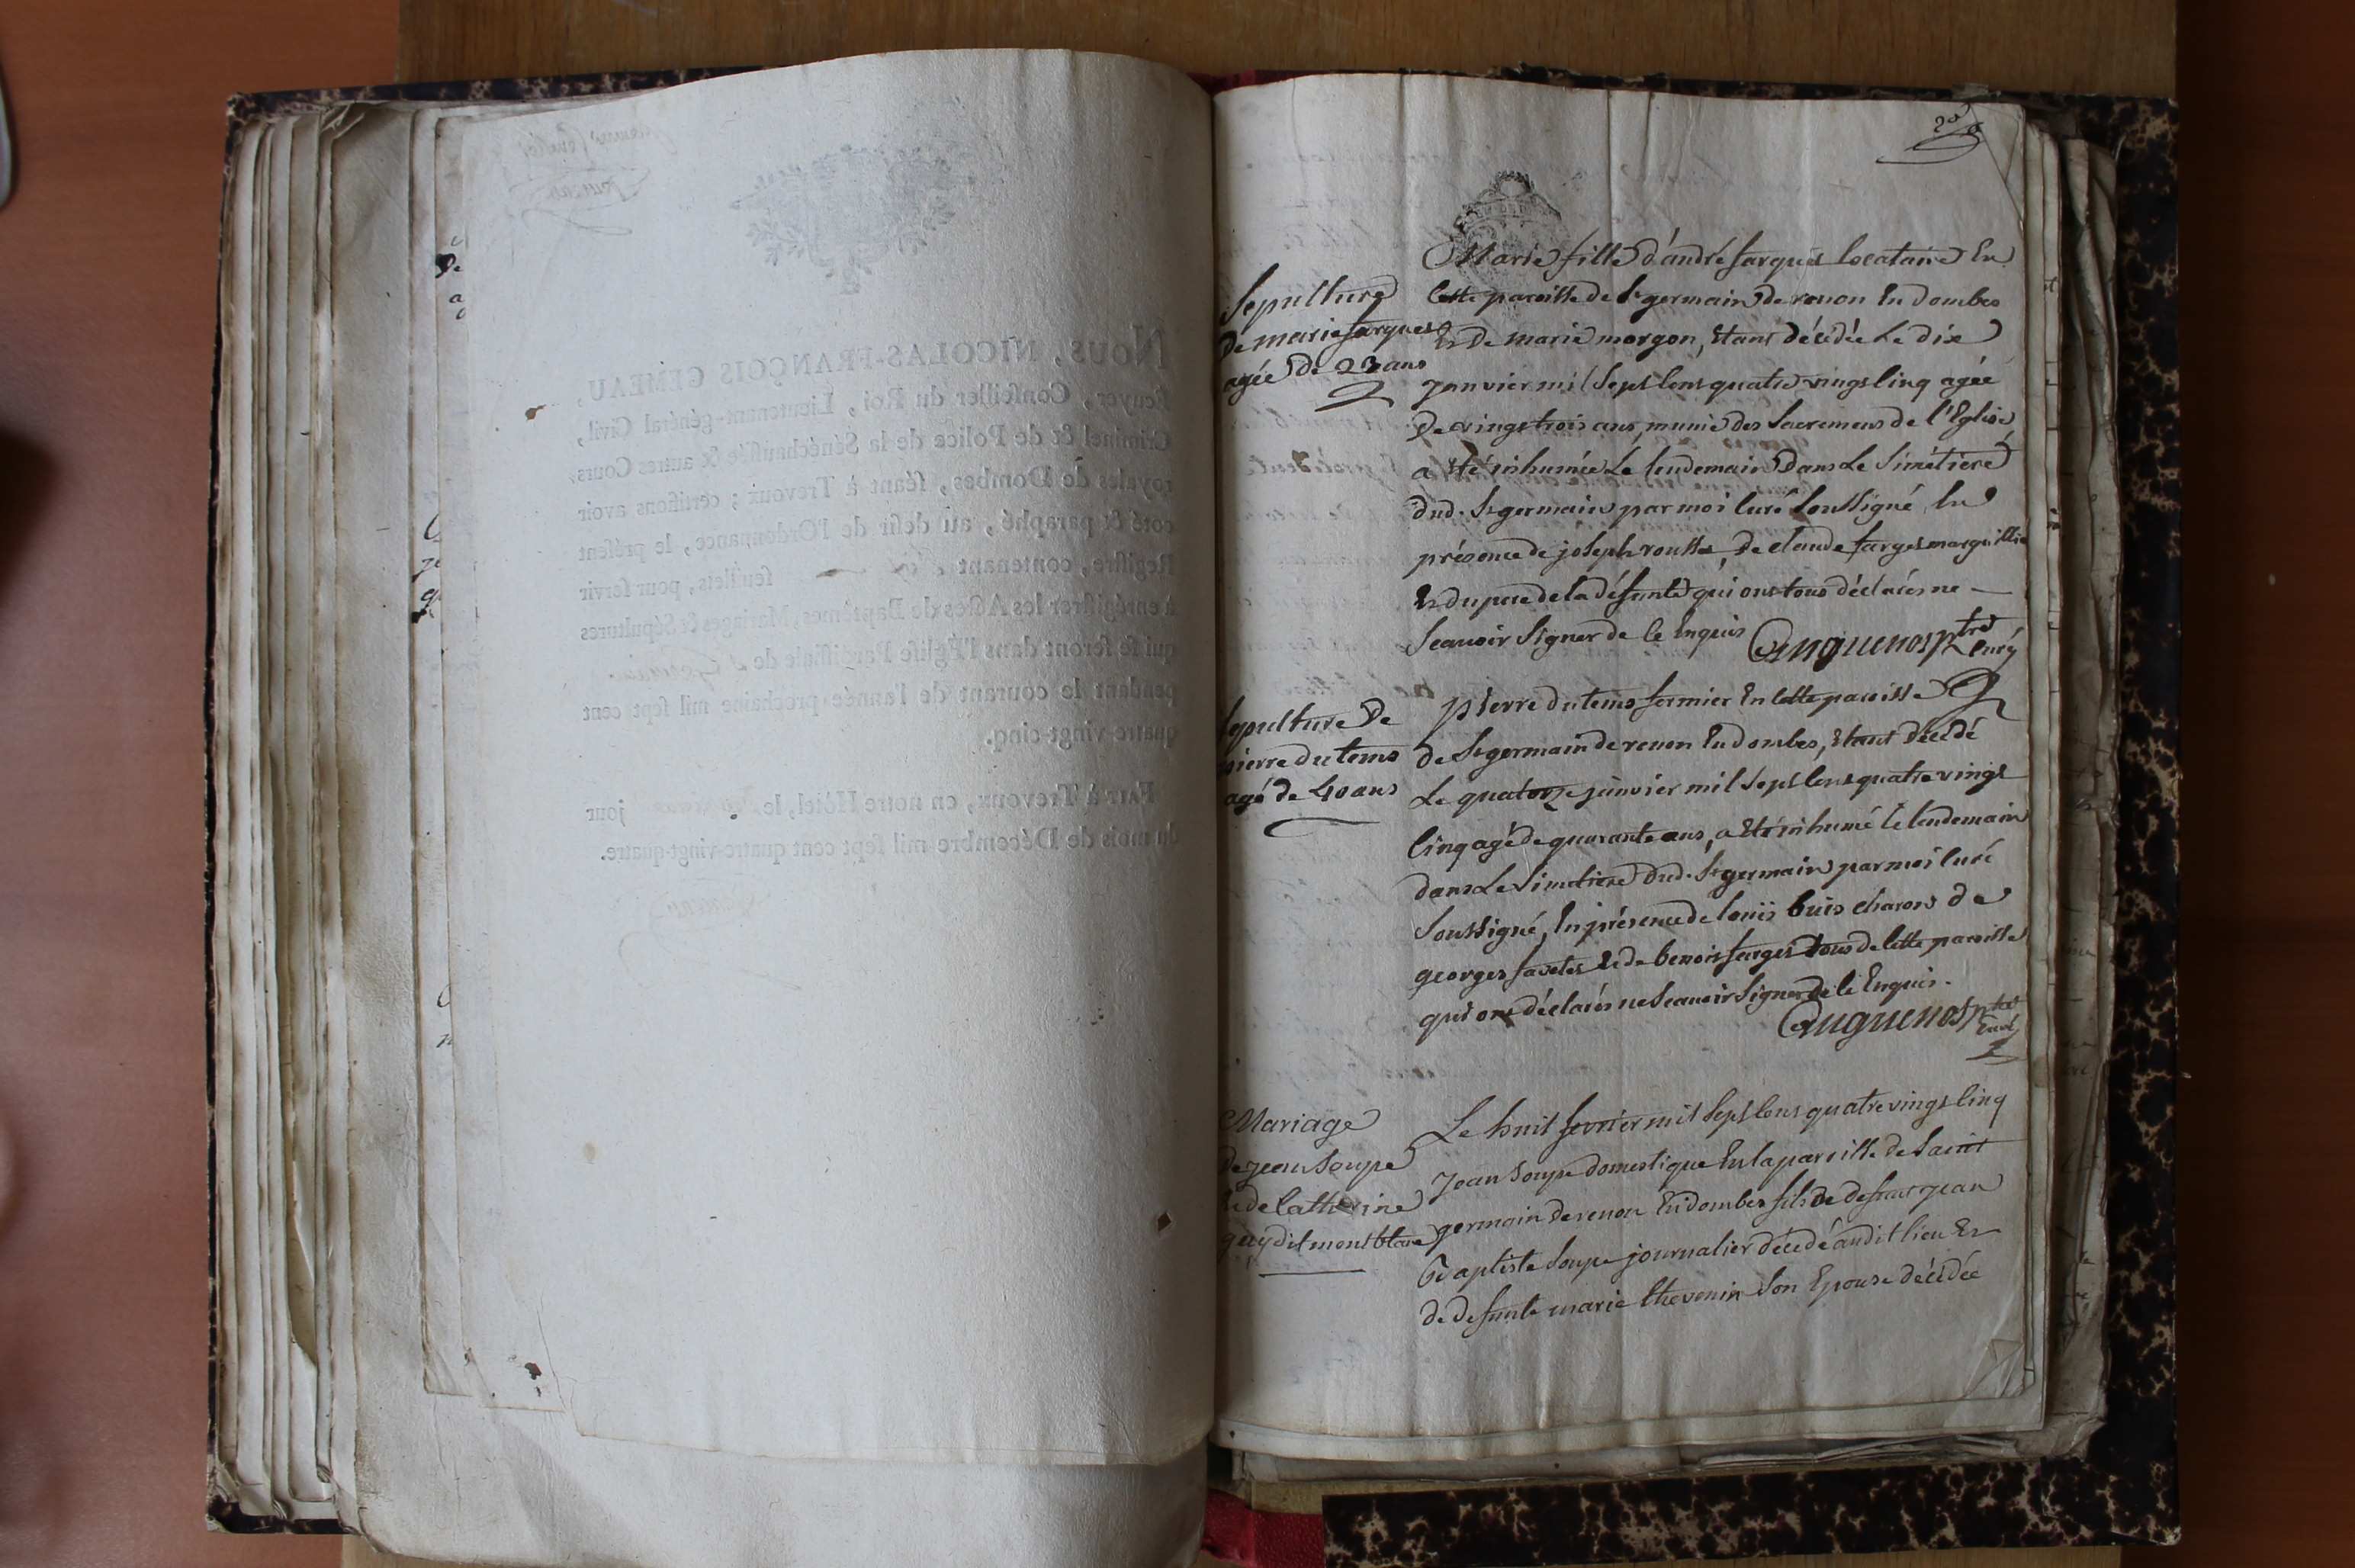 NOUS, NICOLAS-FRANÇOIS GEMEAU,
Ecuyer, Conseiller du Roi, Lieutenant-général Civil,
Criminel & de Police de la Sénéchaussée & autres Cours
royales de Dombes, séant à Trevoux ; certifions avoir
coté & paraphé, au desir de l'Ordonnance, le présent
Registre, contenant feuillets, pour servir
à enrégistrer les Actes de Baptêmes, Mariages & Sépultures
qui se feront dans l'Église Paroissiale de St Germain
pendant le courant de l'année prochaine mil sept cent
quatre-vingt-cinq.
FAIT à Trevoux, en notre Hôtel, le jour
du mois de Décembre mil sept cent quatre-vingt-quatre.
Sepulture
de marie farques
agée de 23 ans
Marie fille d'andré farques locataire En
Cette paroisse de St germain de renon En dombes
Et de marie morgon, Etant décédée Le dix
janvier mil Sept Cens quatre vingt Cinq agée
De vingt trois ans, munie des Sacremens de l'Eglise,
a Eté inhumée Le lendemain dans Le Simétiere
dud. St germain par moi Curé Soussigné, En
présence de joseph rousset, De claude farges marguillier
Et du pere de la défunte qui ont tous déclarés ne
Scavoir Signer de Ce Enquis Cuguenos ptre
curé
Sepulture De
pierre dutems
agé de 40 ans
pierre dutems fermier En Cette paroisse
de St germain de renon En dombes, Etant décédé
Le quatorze janvier mil Sept Cens quatre vingt
Cinq agé de quarante ans, a Eté inhumé Le lendemain
dans Le Simetiere dud. St germain par moi Curé
Soussigné, En présence de louis buis charon de
georges favetes Et de benoit farges tous de Cette paroisse
qui ont déclarés ne Scavoir Signer de Ce Enquis.
Cuguenos ptre
Curé
Mariage
De jean Soupe
Et de Catherine
guy dit montblanc
Le huit fevrier mil Sept Cens quatre vingt Cinq
Jean Soupe domestique En la paroisse de Saint
germain de renon En dombes fils De defunt jean
Baptiste Soupe journalier décédé audit lieu Et
de defunte marie thevenin Son Epouse décédée